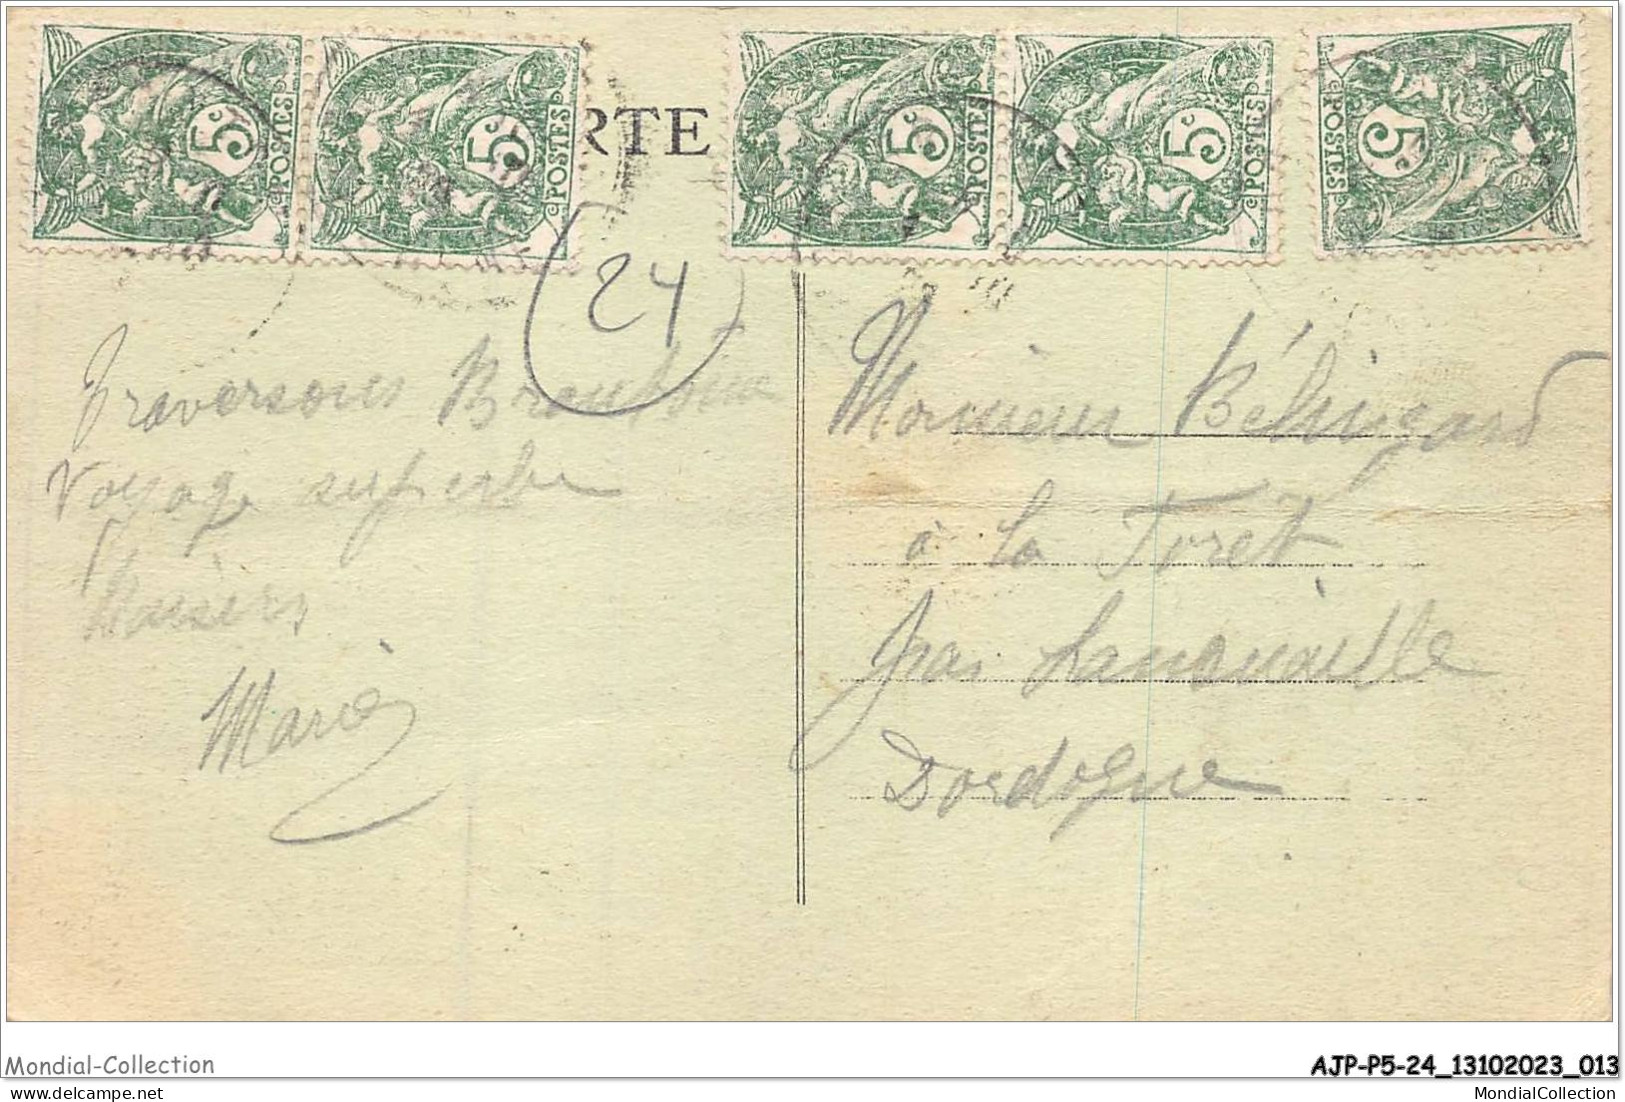 5c POSTES
5c POSTES
RTE
5c POSTES
5c POSTES
5c POSTES
24
Traversons
Voyage superbe
Baisers
Marie
Monsieur Bélingard
à la Foret
par Lanouaille
Dordogne
Mondial-Collection
AJP-P5-24_13102023_013
MondialCollection